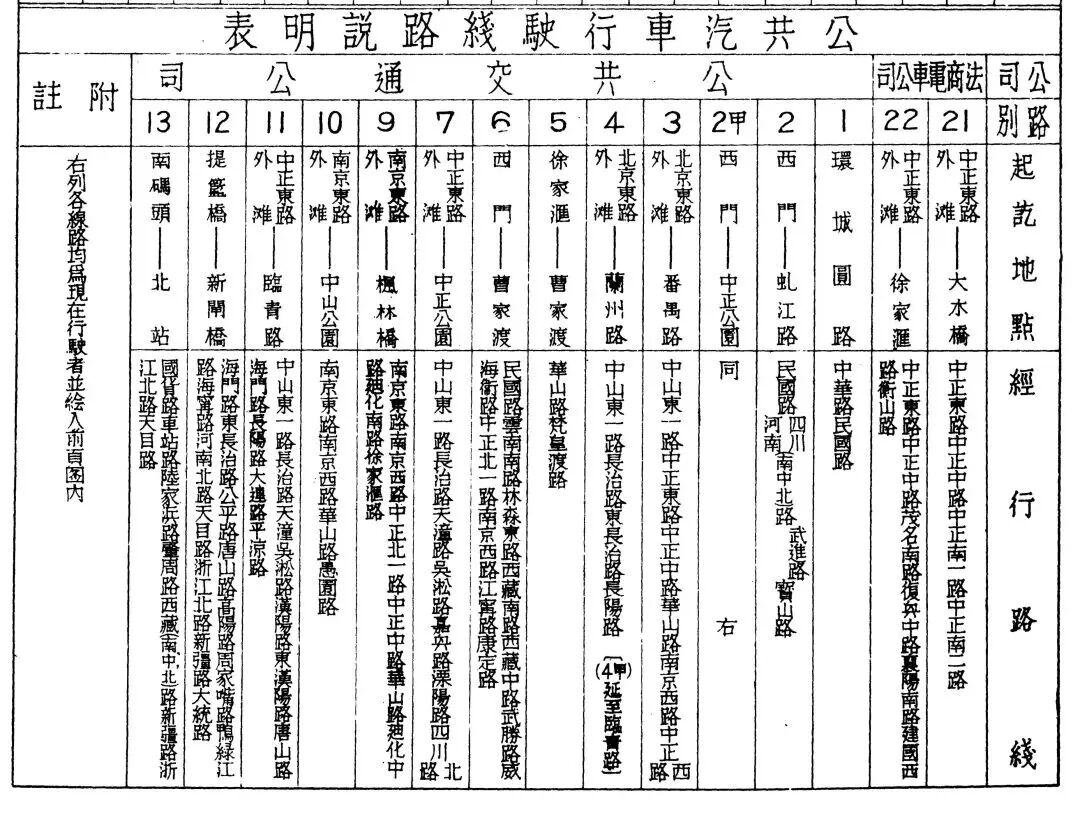 公共汽車行駛綫路說明表
公司
路別
起訖地點
經行路綫
法商電車公司
21
中正東路外灘——大水橋
中正東路中正中路中正南一路中正南二路
22
中正東路外灘——徐家滙
中正東路中正中路茂名南路復興中路襄陽南路建國西
路衡山路
公共交通公司
1
環城圓路
中華路民國路
2
西門——虬江路
民國路四川河南南中北路武進路寶山路
2甲
西門——中正公園
同右
3
北京東路外灘——番禺路
中山東一路中正東路中正中路華山路南京西路中正西路
4
北京東路外灘——蘭州路
中山東一路長治路東長治路長陽路〔(4甲)延至臨青路〕
5
徐家滙——曹家渡
華山路梵皇渡路
6
西門——曹家渡
民國路雲南南路林森東路西藏南路西藏中路武勝路威
海衞路中正北一路南京西路江甯路康定路
7
中正東路外灘——中正公園
中山東一路長治路天潼路吳淞路嘉興路溧陽路四川北路
9
南京東路外灘——楓林橋
南京東路南京西路中正北一路中正中路華山路廸化中
路廸化南路徐家滙路
10
南京東路外灘——中山公園
南京東路南京西路華山路愚園路
11
中正東路外灘——臨青路
中山東一路長治路天潼吳淞路漢陽路東漢陽路唐山路
海門路長陽路大連路平凉路
12
提籃橋——新閘橋
海門路東長治路公平路唐山路高陽路周家嘴路鴨綠江
路海甯路河南北路天目路浙江北路新疆路大統路
13
南碼頭——北站
國貨路車站路陸家浜路肇周路西藏(南中北路新疆路浙
江北路天目路
附註
右列各線路均爲現在行駛者並绘入前頁图內